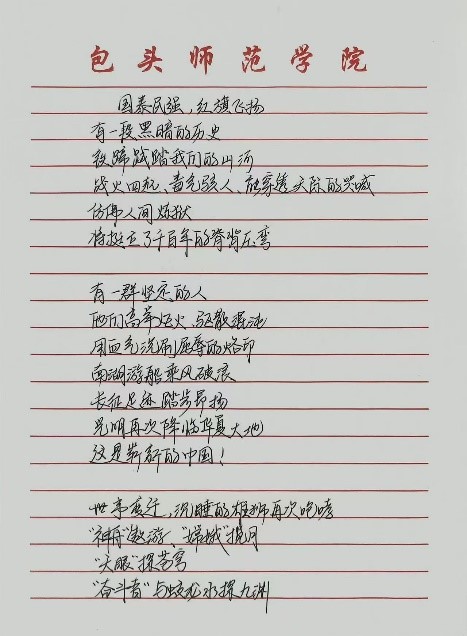 包头师范学院
国泰民强，红旗飞扬
有一段黑暗的历史
铁蹄践踏我们的山河
战火四起、毒气骇人、能穿透天际的哭喊
仿佛人间炼狱
将挺立了千百年的脊背压弯
有一群坚定的人
他们高举炬火、驱散混沌
用血气洗刷屈辱的烙印
南湖游船乘风破浪
长征足迹踏步昂扬
光明再次降临华夏大地
这是崭新的中国！
世事变迁，沉睡的雄狮再次咆哮
"神舟"遨游、"嫦娥"揽月
"天眼"探苍穹
"奋斗者"与蛟龙水探九渊